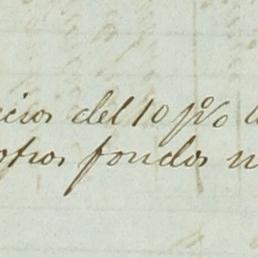 cios del 10 p%
otros fondos